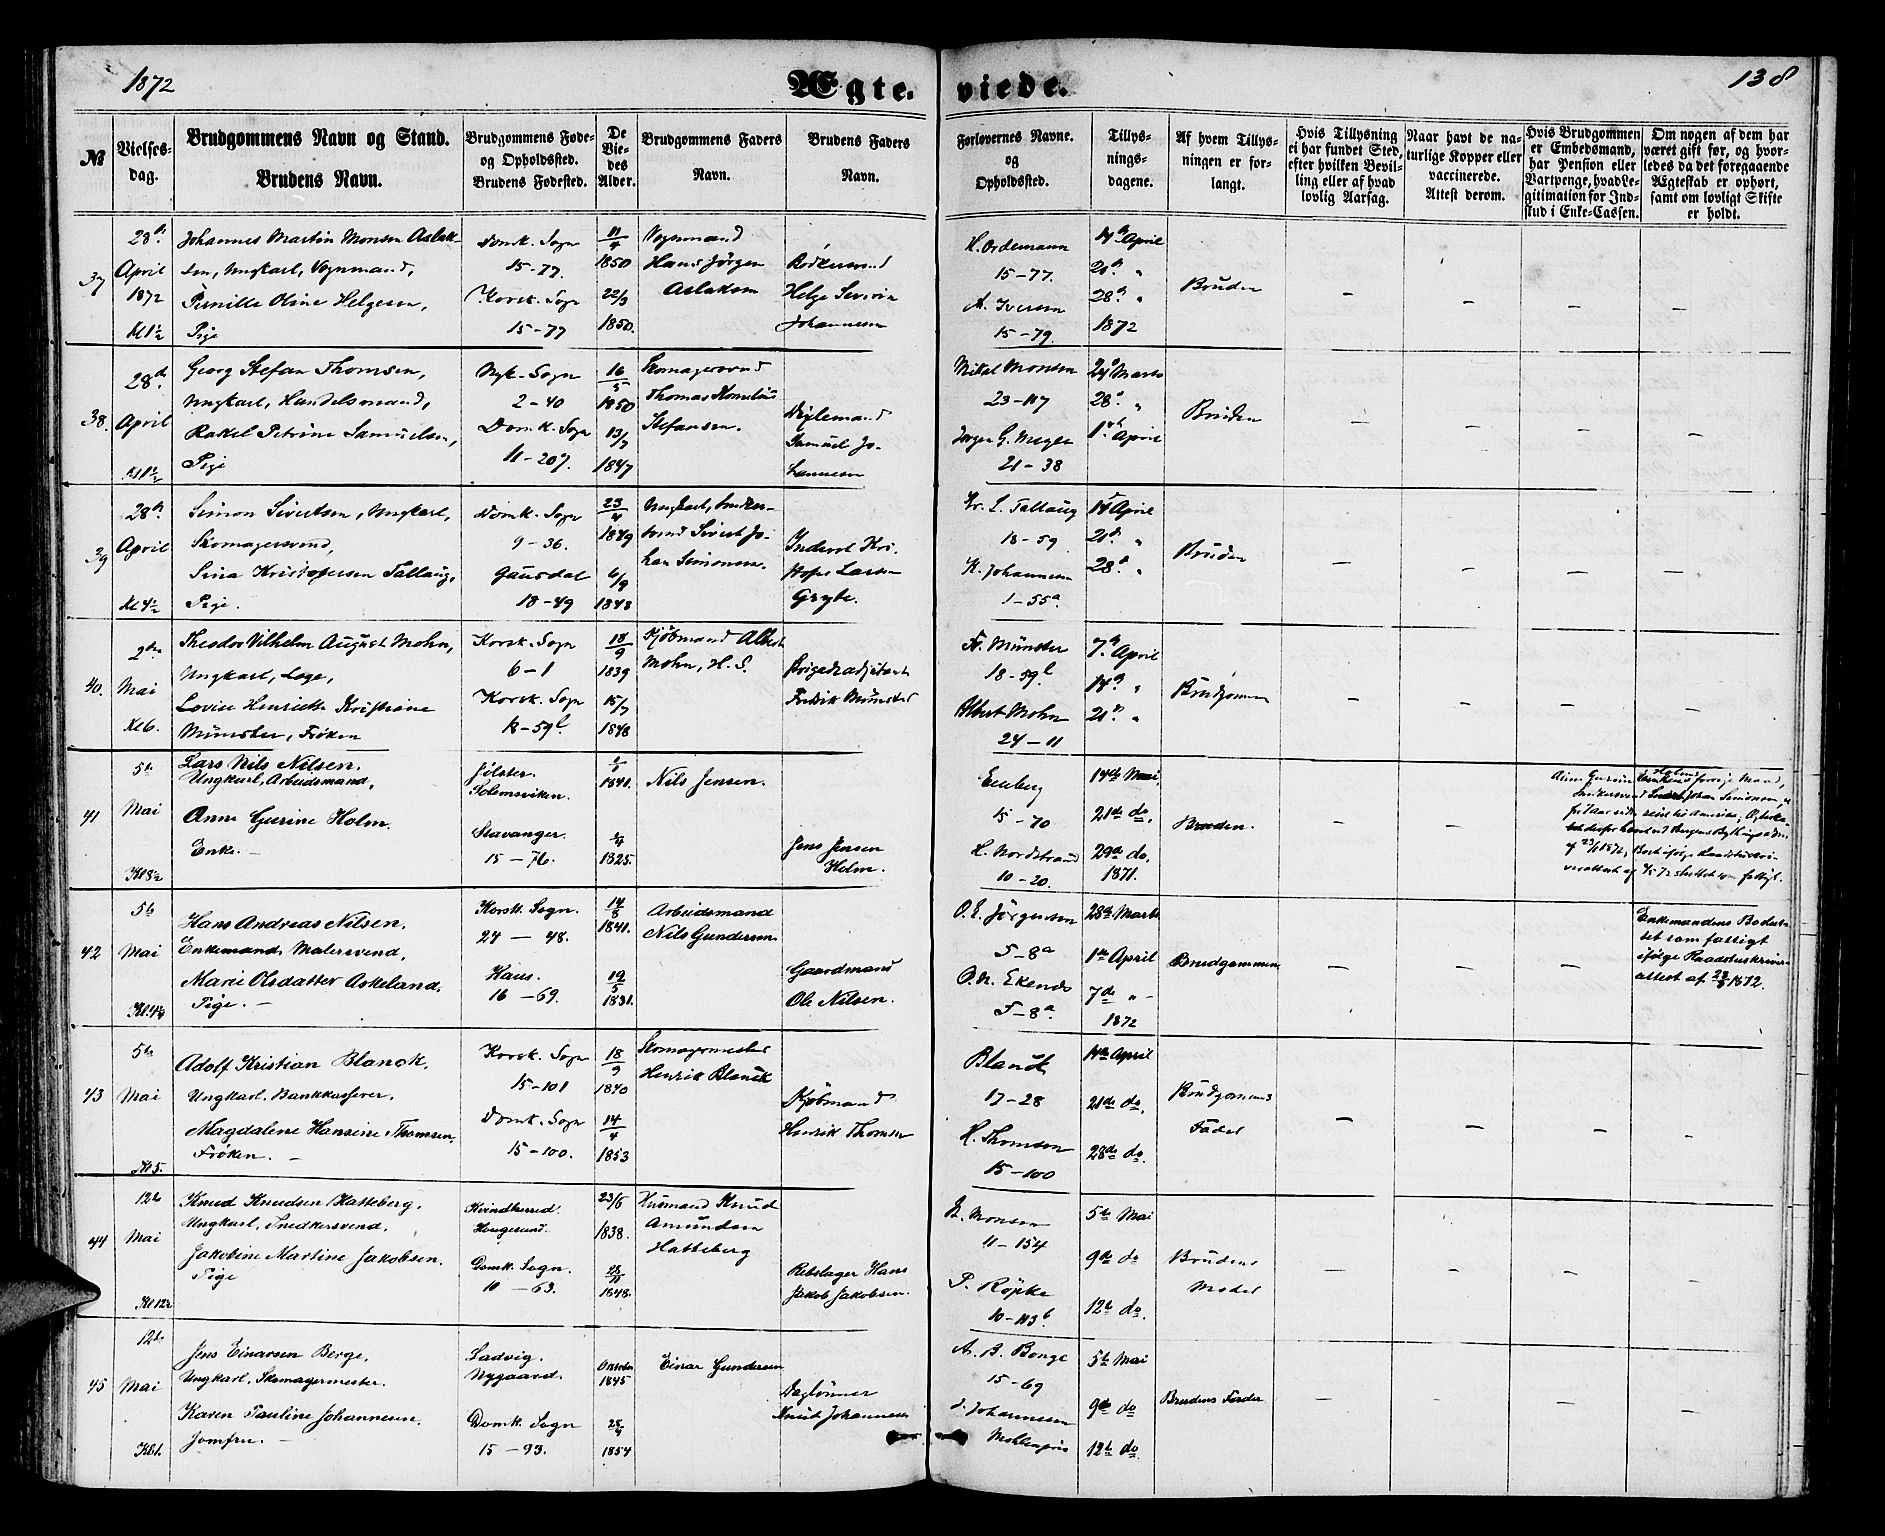 1872
Ægte-
viede.
138
№
Vielses-
dag.
Brudgommens Navn og Stand.
Brudens Navn.
Brudgommens Føde-
og Opholdssted.
Brudens Fødested.
De
Vie-
des
Alder.
Brudgommens Faders
Navn.
Brudens Faders
Navn.
Forlovernes Navne.
og
Opholdssted.
Tillys-
nings-
dagene.
Af hvem Tillys-
ningen er for-
langt.
Hvis Tillysning
ei har fundet Sted,
efter hvilken Bevil-
ling eller af hvad
lovlig Aarsag.
Naar havt de na-
turlige Kopper eller
vaccinerede.
Attest derom.
Hvis Brudgommen
er Embedsmand,
har Pension eller
Vartpenge, hvad Le-
gitimation for Ind-
skud i Enke-Cassen.
Om nogen af dem har
været gift før, og hvor-
ledes da det foregaaende
Ægteskab er ophørt,
samt om lovligt Skifte
er holdt.
37
28de
April
1872
Kl 1½
Johannes Martin Monsen Aslak-
sen, Ungkarl, Vognmand,
Pernille Oline Helgesen,
Pige
Domk. Sogn
15-77.
Korsk. Sogn
15-77
11/4
1850
22/3
1850.
Vognmand
Hans Jørgen
Aslaksen
Bødkersvend
Helge Severin
Johannesen
H. Ordemann
15-77.
A. Iversen
15-79.
14de April
21de "
28de "
1872
Bruden
38.
28de
April
Kl 1½
Georg Stefan Thomsen,
Ungkarl, Handelsmand,
Rakel Petrine Samuelsen,
Pige
Nyk. Sogn
2-40
Domk. Sogn
11-207.
16/5
1850
13/7
1847
Skomagersvend
Thomas Kornelius
Stefansen.
Samuel Jo-
hannesen
Mikal Monsen
23-117
Jørgen G. Meyer
21-38
24de Marts
28de "
1ste April
Bruden
39
28de
April
Kl 4½
Simon Sivertsen, Ungkarl,
Skomagersvend,
Sina Kristofersen Tallaug,
Pige.
Domk. Sogn
9-36.
Gausdal
18-49
23/4
1849
6/9
1848
Ungkarl, Snedker-
svend Sivert Jo-
han Simonsen.
Inderst Kri-
stofer Larsen
Kr. L. Tallaug
18-59
K. Johannesen
1-55a.
14de April
21de "
28de "
Bruden
40.
2den
Mai
Kl 6.
Theodor Vilhelm August Mohn,
Ungkarl, Læge,
Lovise Henriette Kristiane
Münster, Frøken
Korsk. Sogn
6-1
Korsk. Sogn
18-59b
18/9
1839
15/7
1848
Kjøbmand Albert
Mohn, H. S.
Brigadeadjutant
Fredrik Münster
Fr. Münster
18-59b
Albert Mohn
24-11
7de April
14de "
21de "
Brudgommen
41
5te
Mai
Kl 8½
Lars Nils Nilsen.
Ungkarl, Arbeidsmand,
Anne Gurine Holm.
Enke. -
Jølster.
Solemsviken.
Stavanger.
15-76.
1841.
1825
Nils Jensen.
Jens Jensen
Holm.
Eenberg
15-70
H. Nordstrand
10-20.
14de Mai
21de do.
29de do.
1871.
Bruden.
42
5te
Mai
Kl. 4½
Hans Andreas Nilsen.
Enkemand, Malersvend,
Marie Olsdatter Askeland,
Pige. -
Korsk. Sogn.
24 - 48.
Haus.
16 - 69.
14/8
1841.
19/5
1831.
Arbeidsmand
Nils Gundersen
Gaardmand
Ole Nilsen.
O. E. Jørgensen
5-8a
O. N. Ekends
5-8a.
28de Marts
1ste April
7de " -
1872
Brudgommen
Enkemandens Bo slut-
tet som fattigt
ifølge Raadstueskriver-
attest af 1872.
43
5te
Mai
Kl 5.
Adolf Kristian Blanck,
Ungkarl, Bankkasserer,
Magdalene Hansine Thomsen,
Frøken. -
Korsk. Sogn
15-101
Domk. Sogn
15-100.
18/9
1840
14/4
1853
Skomagermester
Henrik Blanck
Kjøbmand
Henrik Thomsen
Blanck
17-28
H. Thomsen
15-100
14de April
21de do.
28de do.
Brudgommens
Fader
44
12te
Mai
Kl 12½
Knud Knudsen Hatteberg,
Ungkarl, Snedkersvend.
Jakobine Martine Jakobsen.
Pige
Kvindherred.
Haugesund.
Domk. Sogn.
10 - 63.
23/6
1838.
28/11
1848.
Husmand Knud
Amundsen
Hatteberg
Rebslager Hans
Jakob Jakobsen.
B. Monsen
11-154
P. Röpke
10-113b.
5te Mai
9de do
12te do.
Brudens
Moder
45
12te
Mai
Kl 1.
Jens Einarsen Berge,
Ungkarl, Skomagermester.
Karen Pauline Johannesen.
Jomfru. -
Ladvig.
Nygaard.
Domk. Sogn
15 - 93.
Oktober
1845
28/4
1854
Einar Gundersen
Daglønner
Knud Johannesen
A. B. Bonge
15-69
J. Johannesen
Møhlenpris
5te Mai
9de do
12te do.
Brudens Fader